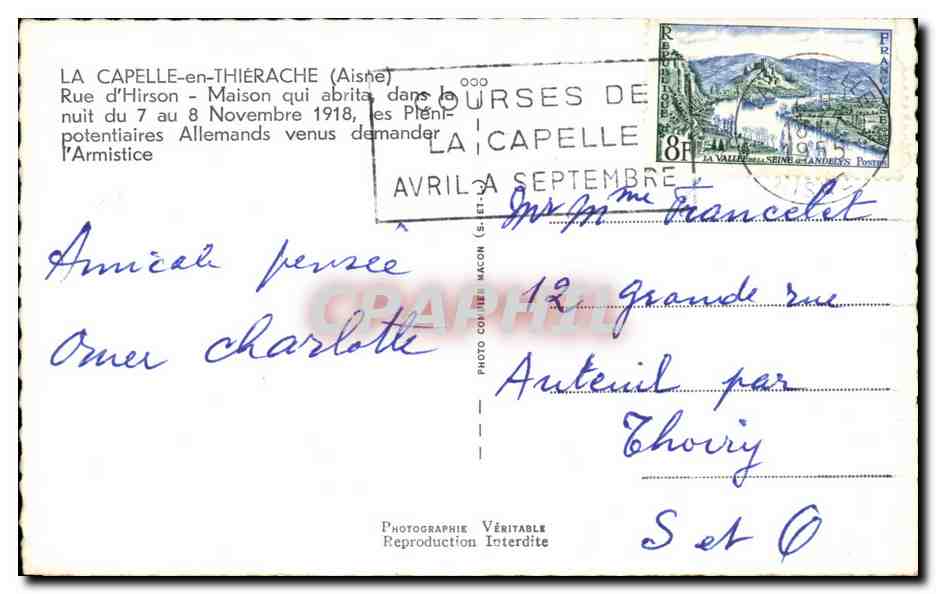 LA CAPELLE-en-THIÉRACHE (Aisne)
Rue d'Hirson - Maison qui abrita, dans la
nuit du 7 au 8 Novembre 1918, les Pléni-
potentiaires Allemands venus demander
l'Armistice
COURSES DE
LA CAPELLE
AVRIL A SEPTEMBRE
REPUBLIQUE
FRANÇAISE
8F
LA VALLÉE DE LA SEINE AUX ANDELYS POSTES
1955
Amicale pensée
Omer Charlotte
Mr Mme Francelet
12 grande rue
Auteuil par
Thoiry
S et O
PHOTO COMBIER MACON (S.-ET-L.)
CPAPHIL
PHOTOGRAPHIE VÉRITABLE
Reproduction Interdite